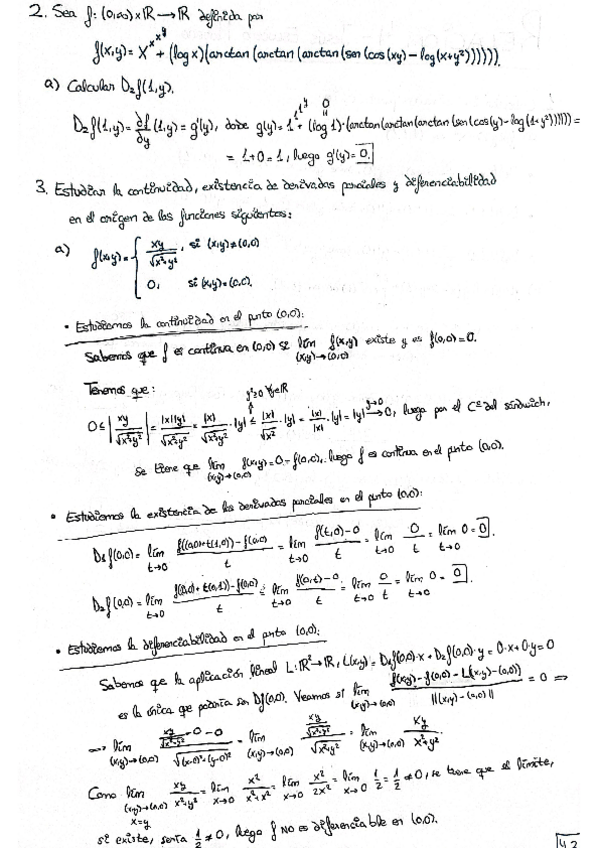 2. Sea f: (0,∞) × ℝ → ℝ definida por
f(x,y) = x^{x^{x^y}} + (log x)(arctan(arctan(arctan(sen(cos(xy) - log(x+y²)))))).
a) Calcular D₂f(1,y).
D₂f(1,y) = ∂f/∂y (1,y) = g'(y), donde g(y) = 1^{1^{1^y}} + (log 1)·(arctan(arctan(arctan(sen(cos(y) - log(1+y²)))))) =
= 1+0 = 1, luego g'(y) = 0.
3. Estudiar la continuidad, existencia de derivadas parciales y diferenciabilidad
en el origen de las funciones siguientes:
a) f(x,y) = { xy/√(x²+y²), si (x,y) ≠ (0,0)
0, si (x,y) = (0,0).
• Estudiemos la continuidad en el punto (0,0):
Sabemos que f es continua en (0,0) si lím_{(x,y)→(0,0)} f(x,y) existe y es f(0,0) = 0.
Tenemos que: y² ≥ 0 ∀y∈ℝ
0 ≤ |xy/√(x²+y²)| = |x||y|/√(x²+y²) = |x|/√(x²+y²) · |y| ≤ |x|/√x² · |y| = |x|/|x| · |y| = |y| →^{y→0} 0, luego por el Cº del sándwich,
se tiene que lím_{(x,y)→(0,0)} f(x,y) = 0 = f(0,0), luego f es continua en el punto (0,0).
• Estudiemos la existencia de las derivadas parciales en el punto (0,0):
D₁f(0,0) = lím_{t→0} (f((0,0)+t(1,0)) - f(0,0))/t = lím_{t→0} (f(t,0) - 0)/t = lím_{t→0} 0/t = lím_{t→0} 0 = 0.
D₂f(0,0) = lím_{t→0} (f((0,0)+t(0,1)) - f(0,0))/t = lím_{t→0} (f(0,t) - 0)/t = lím_{t→0} 0/t = lím_{t→0} 0 = 0.
• Estudiemos la diferenciabilidad en el punto (0,0):
Sabemos que la aplicación lineal L: ℝ² → ℝ, L(x,y) = D₁f(0,0)·x + D₂f(0,0)·y = 0·x + 0·y = 0
es la única que podría ser Df(0,0). Veamos si lím_{(x,y)→(0,0)} (f(x,y) - f(0,0) - L((x,y)-(0,0)))/||(x,y) - (0,0)|| = 0 ⇒
⇒ lím_{(x,y)→(0,0)} (xy/√(x²+y²) - 0 - 0)/√((x-0)²+(y-0)²) = lím_{(x,y)→(0,0)} (xy/√(x²+y²))/√(x²+y²) = lím_{(x,y)→(0,0)} xy/(x²+y²).
Como lím_{(x,y)→(0,0), x=y} xy/(x²+y²) = lím_{x→0} x²/(x²+x²) = lím_{x→0} x²/2x² = lím_{x→0} 1/2 = 1/2 ≠ 0, se tiene que el límite,
si existe, sería 1/2 ≠ 0, luego f NO es diferenciable en (0,0).